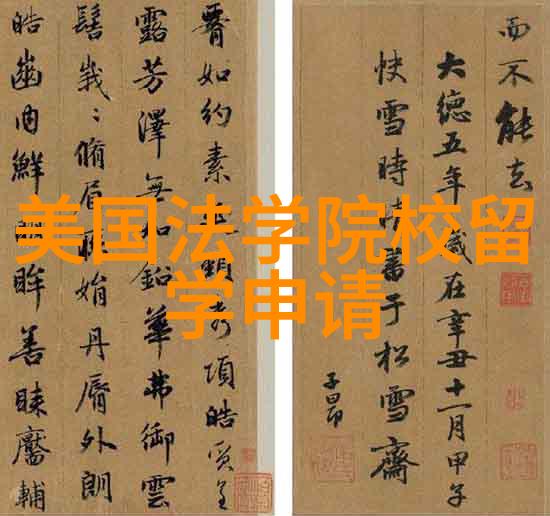 美国法学院校留
学申请
如約素延頸秀項皓質呈
露芳澤無加鉛華弗御雲
髻峩〻脩眉聯娟丹脣外朗
皓齒内鮮明眸善睞靨輔
而不能去
大德五年歲在辛丑十一月甲子
快雪時晴書于松雪齋
子昂